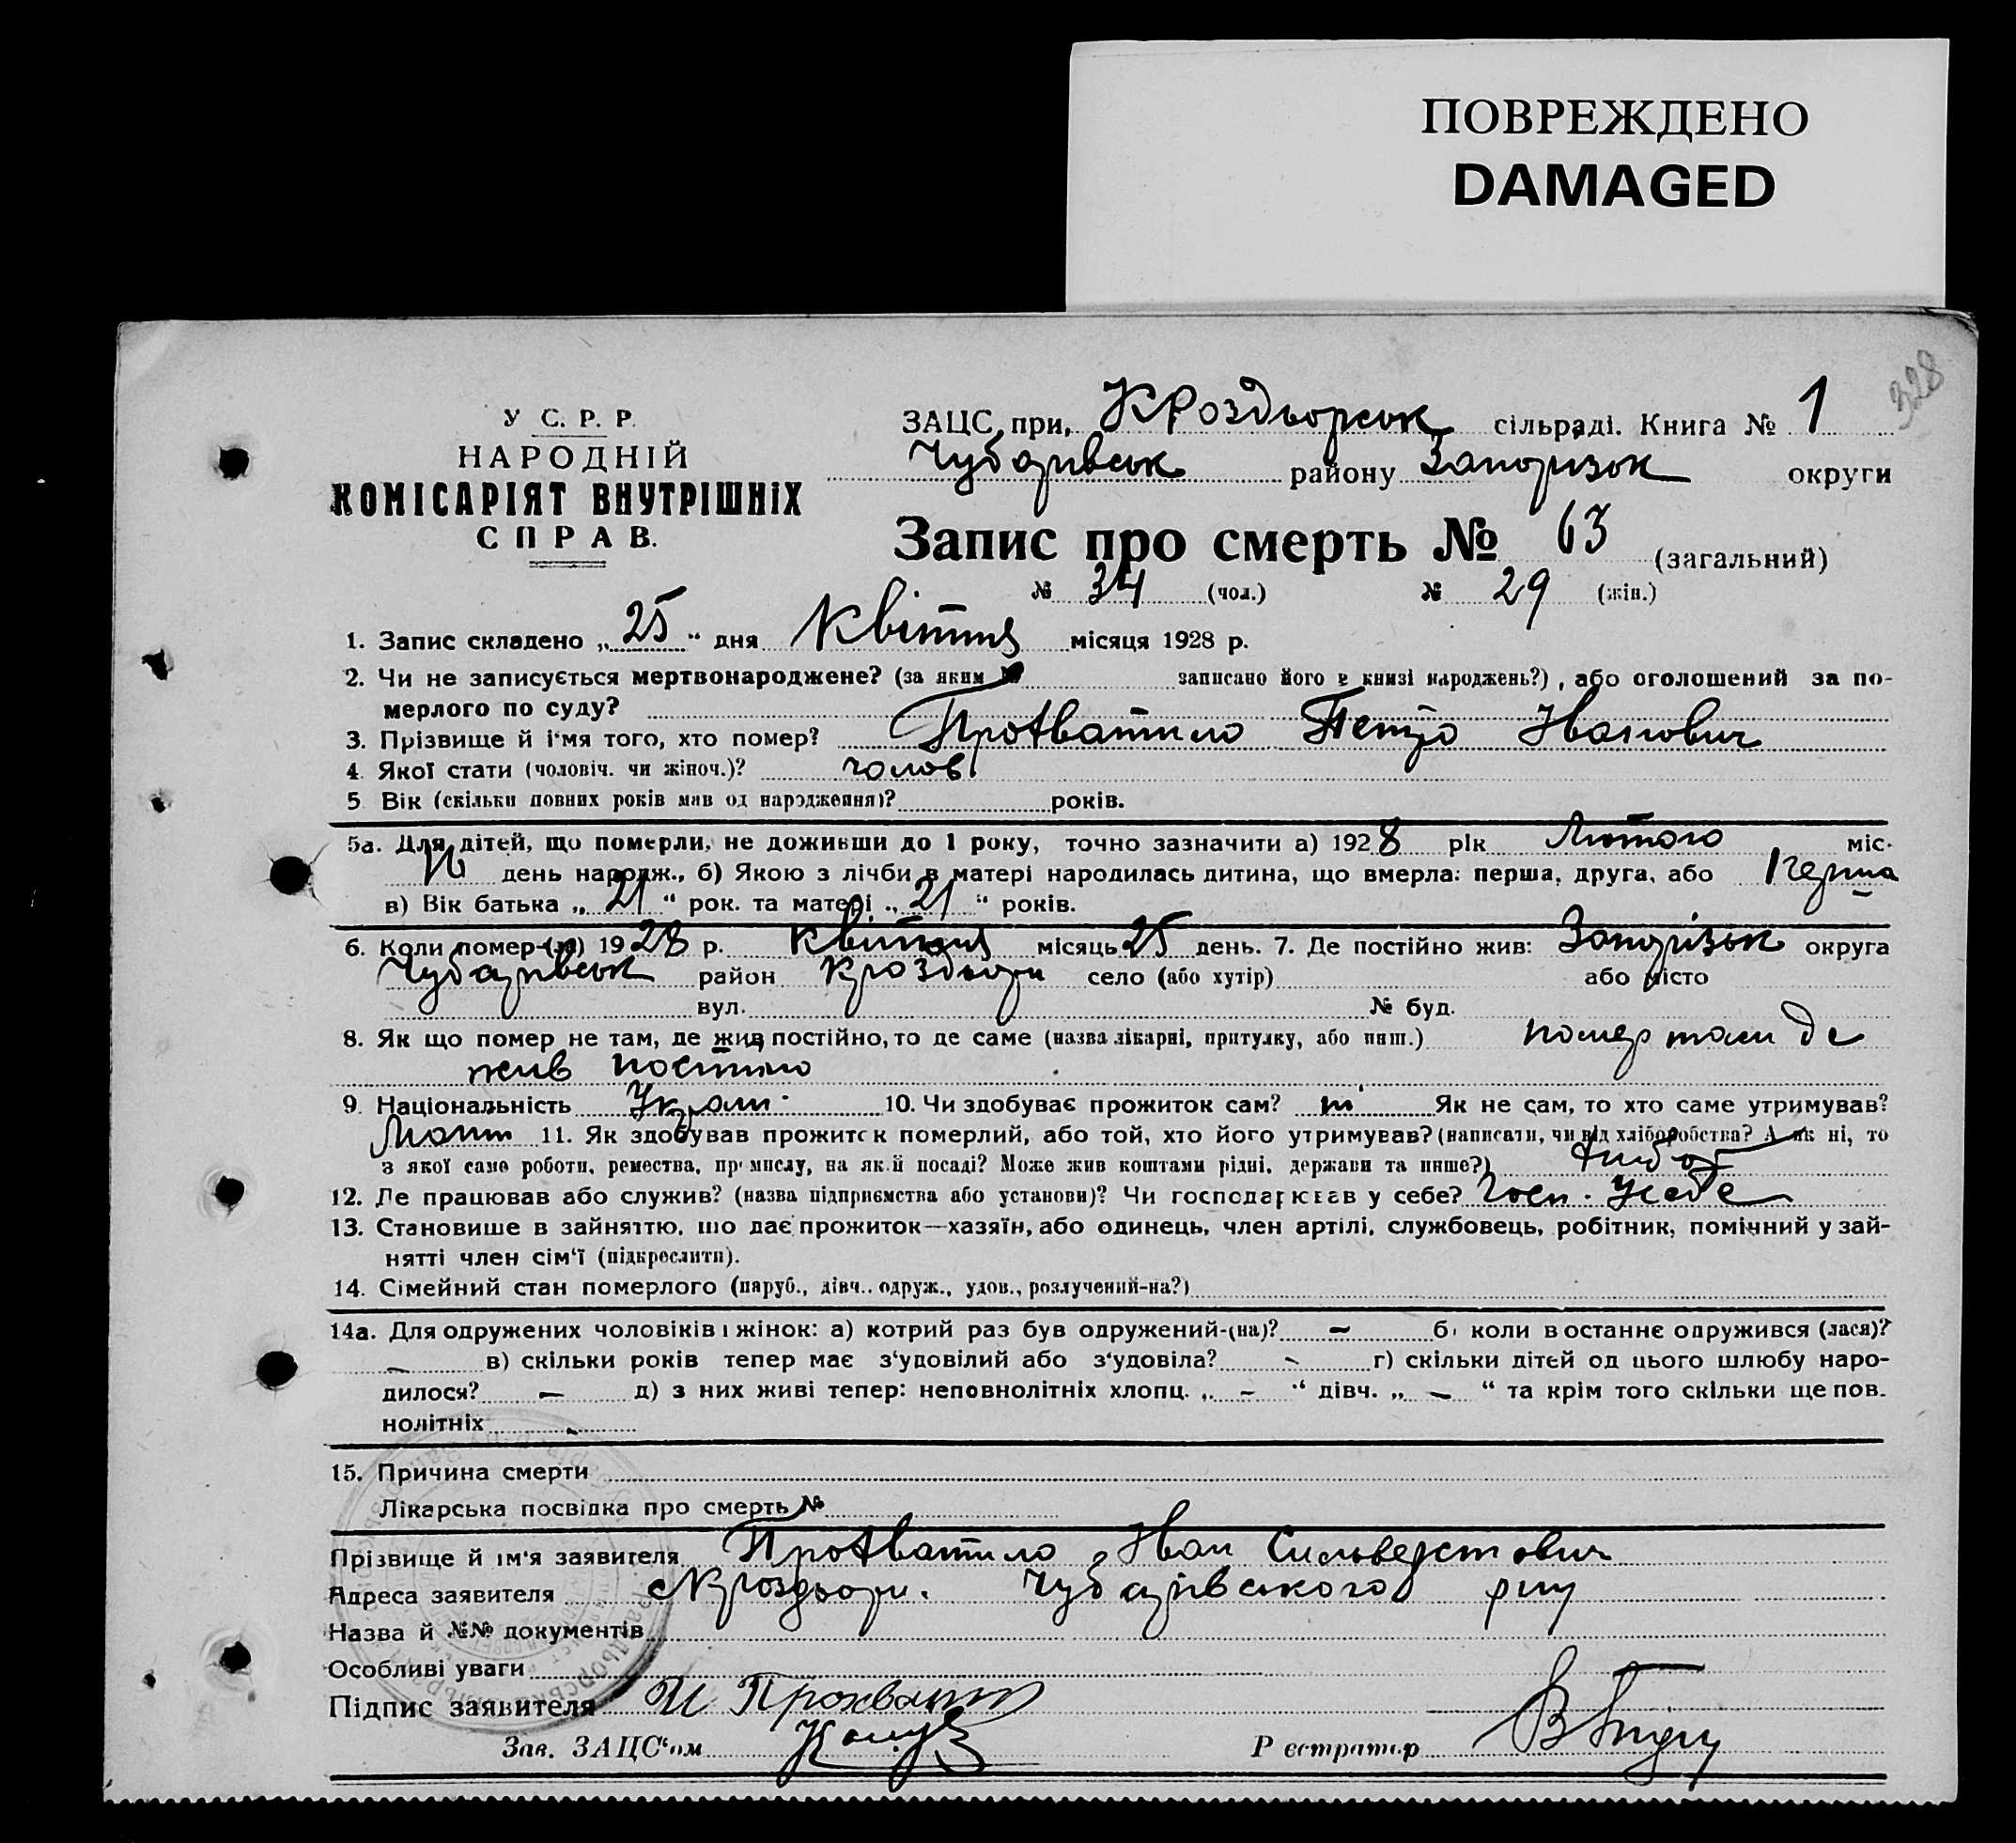 ПОВРЕЖДЕНО
DAMAGED
328
У С. Р. Р.
НАРОДНІЙ
КОМІСАРІЯТ ВНУТРІШНІХ
СПРАВ.
ЗАЦС при Кроздьорськ сільраді. Книга № 1
Чубарівськ району Запорізьк округи
Запис про смерть № 63 (загальний)
№ 34 (чол.) № 29 (жін.)
1. Запис складено „25“ дня Квітня місяця 1928 р.
2. Чи не записується мертвонароджене? (за яким № записано його в книзі народжень?), або оголошений за по-
мерлого по суду?
3. Прізвище й і‘мя того, хто помер? Прохватило Петро Іванович
4. Якої стати (чоловіч. чи жіноч.)? чолов.
5 Вік (скільки повних років мав од народження)? років.
5а. Для дітей, що померли, не доживши до 1 року, точно зазначити а) 1928 рік Лютого міс.
день народж., б) Якою з лічби в матері народилась дитина, що вмерла: перша, друга, або
в) Вік батька „21“ рок. та матері „21“ років.
6. Коли помер-(ла) 1928 р. Квітня місяць 25 день. 7. Де постійно жив: Запорізьк округа
Чубарівськ район Кроздьори село (або хутір) або місто
вул. № буд.
8. Як що помер не там, де жив постійно, то де саме (назва лікарні, притулку, або инш.) помер там де
жив постійно
9. Національність Україн. 10. Чи здобуває прожиток сам? ні Як не сам, то хто саме утримував?
11. Як здобував прожиток померлий, або той, хто його утримував? (написати, чи від хліборобства? А як ні, то
з якої саме роботи, ремества, промислу, на якій посаді? Може жив коштами рідні, держави та инше?) хлібор
12. Де працював або служив? (назва підприємства або установи)? Чи господарював у себе? Госп. У себе
13. Становище в зайняттю, що дає прожиток—хазяїн, або одинець, член артілі, службовець, робітник, помічний у зай-
нятті член сім‘ї (підкреслити).
14. Сімейний стан померлого (паруб., дівч., одруж., удов., розлучений-на?)
14а. Для одружених чоловіків і жінок: а) котрий раз був одружений-(на)? — б) коли востаннє одружився (лася)?
— в) скільки років тепер має з‘удовілий або з‘удовіла? - г) скільки дітей од цього шлюбу наро-
дилося? — д) з них живі тепер: неповнолітніх хлопц. „ - “ дівч. „ - “ та крім того скільки ще пов-
нолітніх -
15. Причина смерти
Лікарська посвідка про смерть №
Прізвище й ім‘я заявителя Прохватило Іван Сильверстович
Адреса заявителя с Кроздьори. Чубарівського р-ну
Назва й №№ документів
Особливі уваги
Підпис заявителя И Прохвати
Зав. ЗАЦС‘ом
Реєстратор